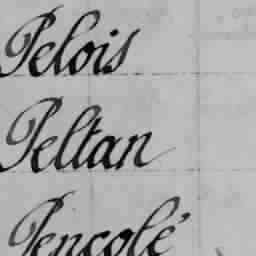 Pelois
Peltan
Pencolé